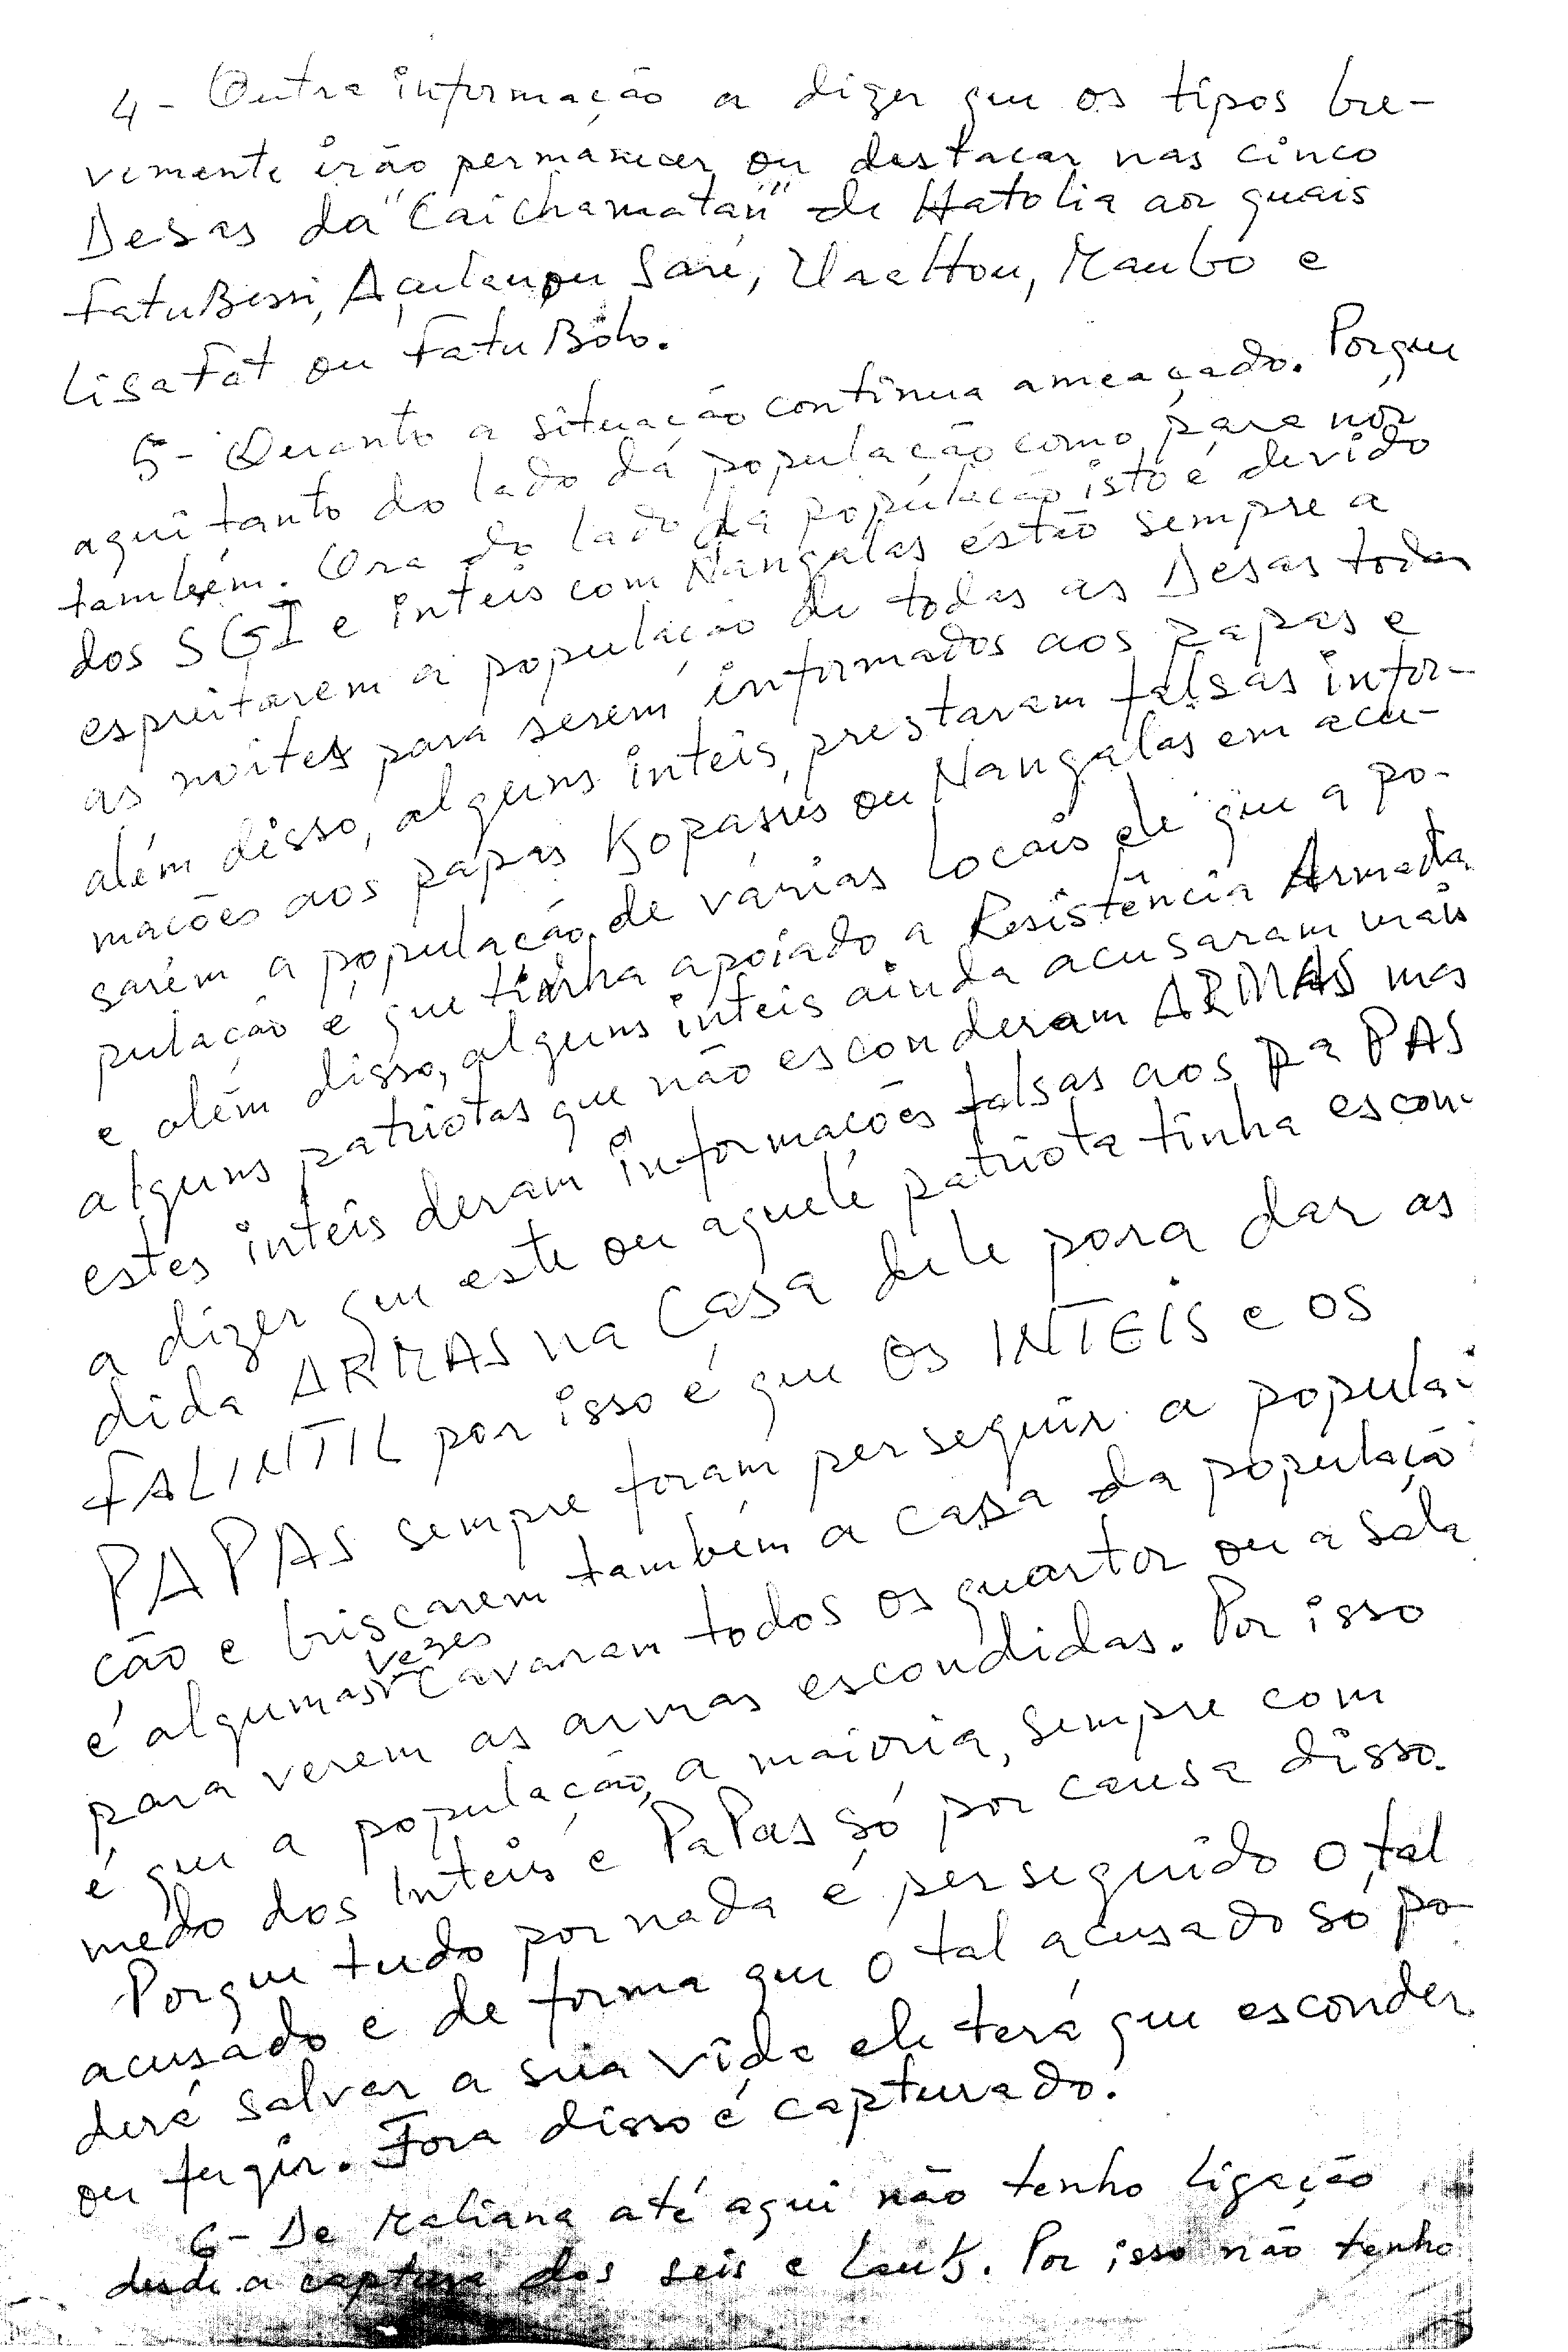 4- Outra informação a dizer que os tipos bre-
vemente irão permanecer ou destacar nas cinco
Desas da "Caichamatan" de Hatolia aos quais
FatuBessi, Açulau ou Saré, UraHou, Maubó e
LisaFat ou Fatu Bólo.
5- Quanto a situação continua ameaçado. Porque
aqui tanto do lado da população como para nós
também. Ora do lado da população isto é devido
dos SGI e inteis com Nangalas estão sempre a
espreitarem a população de todas as Desas todas
as noites para serem informados aos papas e
além disso, alguns inteis, prestaram falsas infor-
mações aos papas Kopasus ou Nangalas em acu-
sarem a população de várias locais de que a po-
pulação é que tinha apoiado a Resistência Armada
e além disso, alguns inteis ainda acusaram mais
alguns patriotas que não esconderam ARMAS mas
estes inteis deram informações falsas aos paPAS
a dizer que este ou aquele patriota tinha escon-
dida ARMAS na Casa dele para dar as
FALINTIL por isso é que Os INTEIS e OS
PAPAS sempre foram perseguir a popula-
ção e buscarem também a casa da populaçã
é algumas vezes cavaram todos os quartos ou a sala
para verem as armas escondidas. Por isso
é que a população, a maioria, sempre com
medo dos Inteis e PaPas só por causa disso.
Porque tudo por nada é perseguido o tal
acusado e de forma que o tal acusado só po-
derá salvar a sua vida ele terá que esconder
ou fugir. Fora disso é capturado.
6- De Maliana até aqui não tenho ligação
desde a captura dos seis e . Por isso não tenho